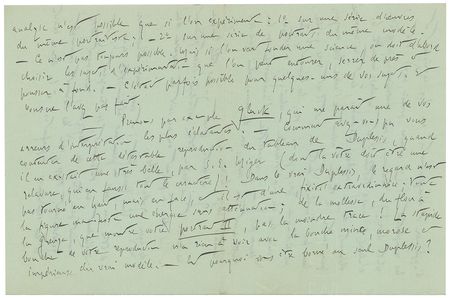 analyse n'est possible que si l'on expérimente : 1° sur une série d'œuvres
du même portraitiste ; — 2° sur une série de portraits du même modèle.
— Ce n'est pas toujours possible. Mais si l'on veut fonder une science, on doit d'abord
choisir les sujets d'expérimentation que l'on peut entourer, serrer de près et
pousser à fond. — C'était parfois possible pour quelques-uns de vos sujets, et
vous ne l'avez pas fait.
— Prenons par exemple Gluck, qui me paraît une de vos
erreurs d'interprétation les plus éclatantes. — Comment avez-vous pu vous
contenter de cette détestable reproduction du tableau de Duplessis, quand
il en existait une très belle, par (dont la vôtre doit être une
, qui en fausse tout le caractère) ! Dans le vrai Duplessis, le regard n'est
pas tourné en haut, mais en face, et il est d'une fixité extraordinaire. Toute
la figure manifeste une énergie sans atténuation. De la mollesse, du flou à
la Greuze, que montre votre portrait II, pas la moindre trace ! La stupide
bouche de votre reproduction n'a rien à voir avec la bouche mince, morose et
impérieuse du vrai modèle. — Et pourquoi vous être borné au seul Duplessis ?